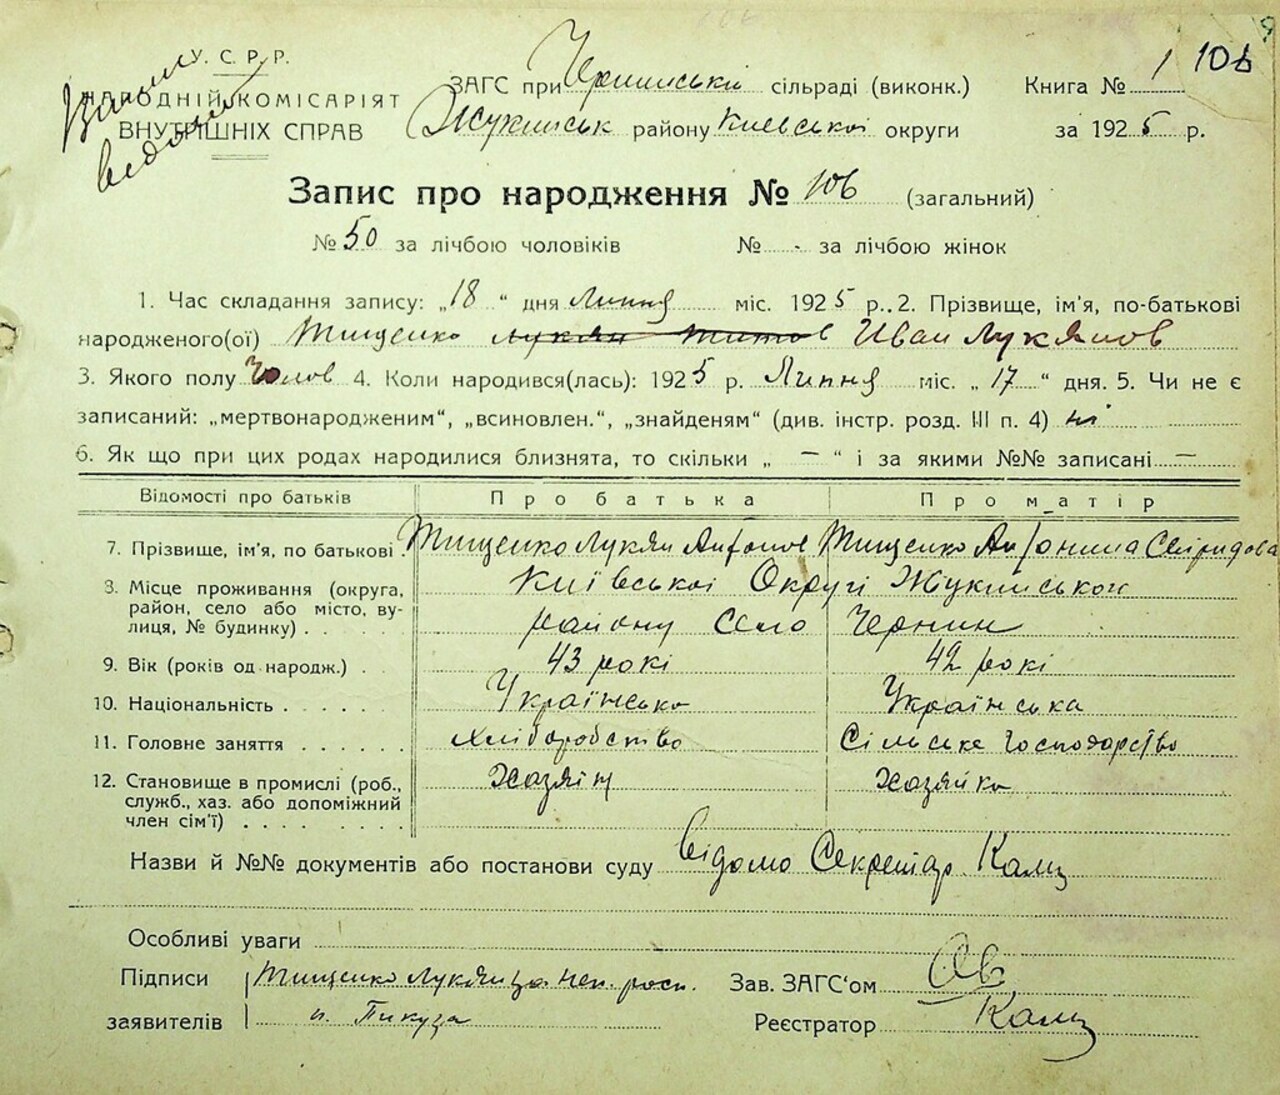 У. С. Р. Р.
НАРОДНІЙ КОМІСАРІЯТ
ВНУТРІШНІХ СПРАВ
ЗАГС при Чернинські сільраді (виконк.) Книга № 1 106
Жукинськ району Киевської округи за 1925 р.
Запис про народження № 106 (загальний)
№ 50 за лічбою чоловіків № - за лічбою жінок
1. Час складання запису: „18“ дня Липня міс. 1925 р. 2. Прізвище, ім’я, по-батькові
народженого(ої) Тищенко Лукян Титов Иван Лукянов
3. Якого полу Чолов 4. Коли народився(лась): 1925 р. Липня міс. „17“ дня. 5. Чи не є
записаний: „мертвонародженим“, „всиновлен.“, „знайденям“ (див. інстр. розд. III п. 4) ні
6. Як що при цих родах народилися близнята, то скільки „ — “ і за якими №№ записані —
Відомості про батьків Про батька Про матір
7. Прізвище, ім’я, по батькові Тищенко Лукян Антонов Тищенко Антонина Свиридова
8. Місце проживання (округа, Київської Округі Жукинського
район, село або місто, ву-
лиця, № будинку) району Село Чернин
9. Вік (років од народж.) 43 рокі 42 рокі
10. Національність Українсько Українська
11. Головне заняття Хліборобство Сільське Господарство
12. Становище в промислі (роб., Хозяін Хозяйка
служб., хаз. або допоміжний
член сім’ї)
Назви й №№ документів або постанови суду Відомо Секретар
Особліві уваги
Підписи Тищенко Лукян за неп. росп. Зав. ЗАГС‘ом
заявителів Реєстратор